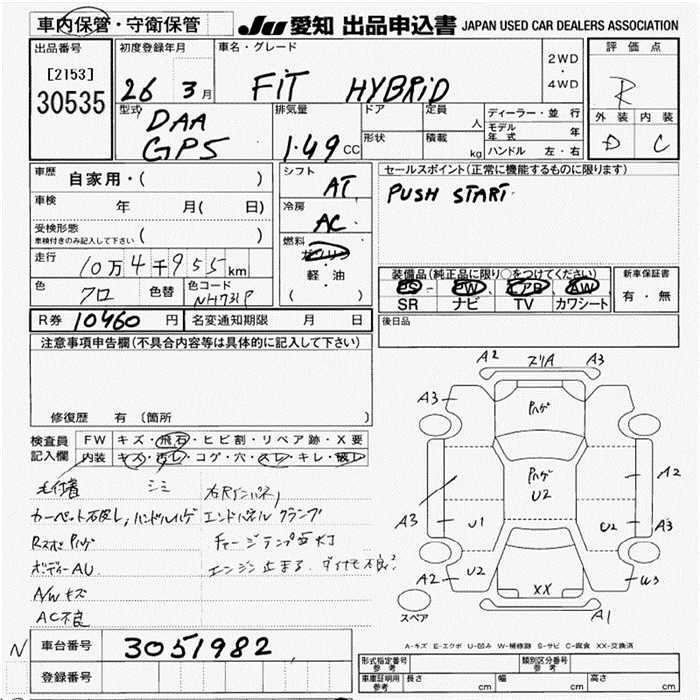 車内保管・守衛保管
JU 愛知 出品申込書 JAPAN USED CAR DEALERS ASSOCIATION
出品番号
[2153]
30535
初度登録年月
26 3月
車名・グレード
FIT HYBRID
2WD
・
4WD
評価点
R
外装 内装
D C
型式
DAA
GP5
排気量
1.49CC
ドア
形状
定員
人
積載
kg
ディーラー・並行
モデル年式 年
ハンドル 左・右
車歴
自家用・( )
車検
年 月( 日)
受検形態
車検付きのみ記入して下さい ( )
走行
10万4千955km
色
クロ
色替
色コード
NH731P
シフト
AT
冷房
AC
燃料
ガソリン
・
軽・油
( )
セールスポイント(正常に機能するものに限ります)
PUSH START
装備品(純正品に限り○をつけてください)
PS・PW・エアB・AW
SR ナビ TV カワシート
新車保証書
有・無
R券 10460 円
名変通知期限 月 日
後日品
注意事項申告欄(不具合内容等は具体的に記入して下さい)
修復歴 有(箇所 )
検査員
記入欄
FW キズ・飛石・ヒビ割・リペア跡・X要
内装 キズ・汚レ・コゲ・穴・スレ・キレ・破レ
シミ
ハンドルハゲ
エンドパネル クランプ
ボディーAU
エンジン止まる
A/Wキズ
AC不良
A2 ズリA A3
A3
ハゲ
ハゲ
U2
A3
U1
U2
A2
A3
A2
U2
XX
W3
A1
スペア
A-キズ E-エクボ U-凹み W-補修跡 S-サビ C-腐食 XX-交換済
N
車台番号
3051982
登録番号
型式指定番号
参考
類別区分番号
参考
車庫証明用
参考
長さ cm
幅 cm
高さ cm